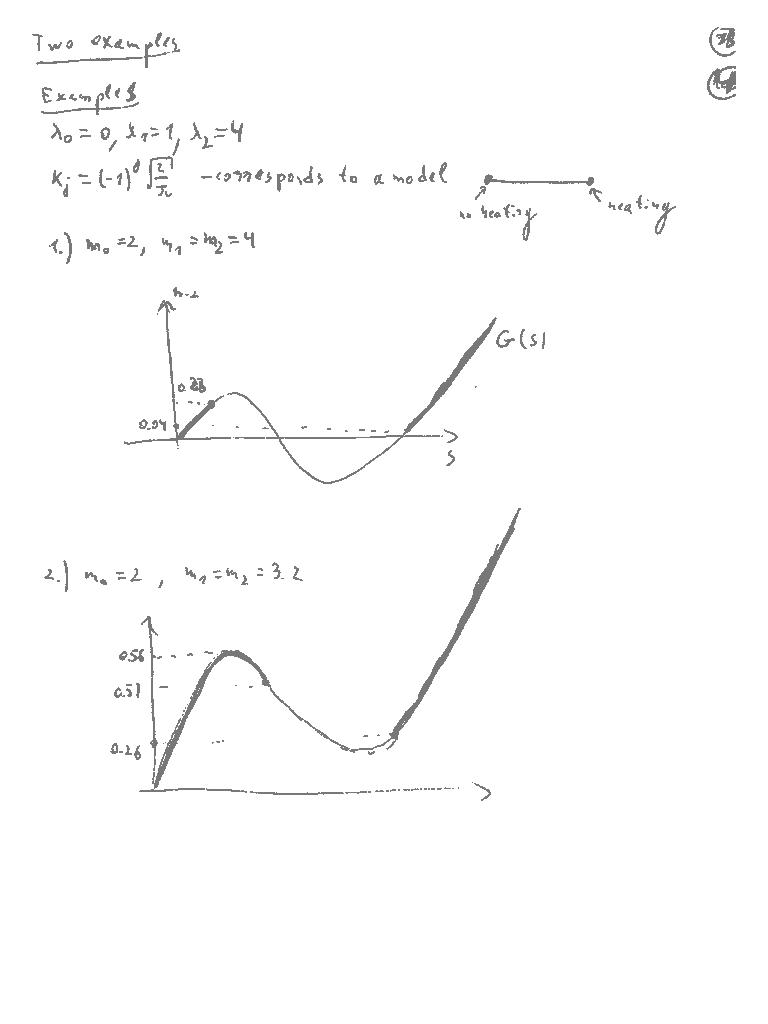 Two examples
Examples
λ₀ = 0, λ₁ = 1, λ₂ = 4
Kⱼ = (-1)ʲ √(2/π) – corresponds to a model
no heating
heating
1.) m₀ = 2, m₁ = m₂ = 4
0.23
0.04
G(s)
s
2.) m₀ = 2, m₁ = m₂ = 3.2
0.56
0.51
0.26